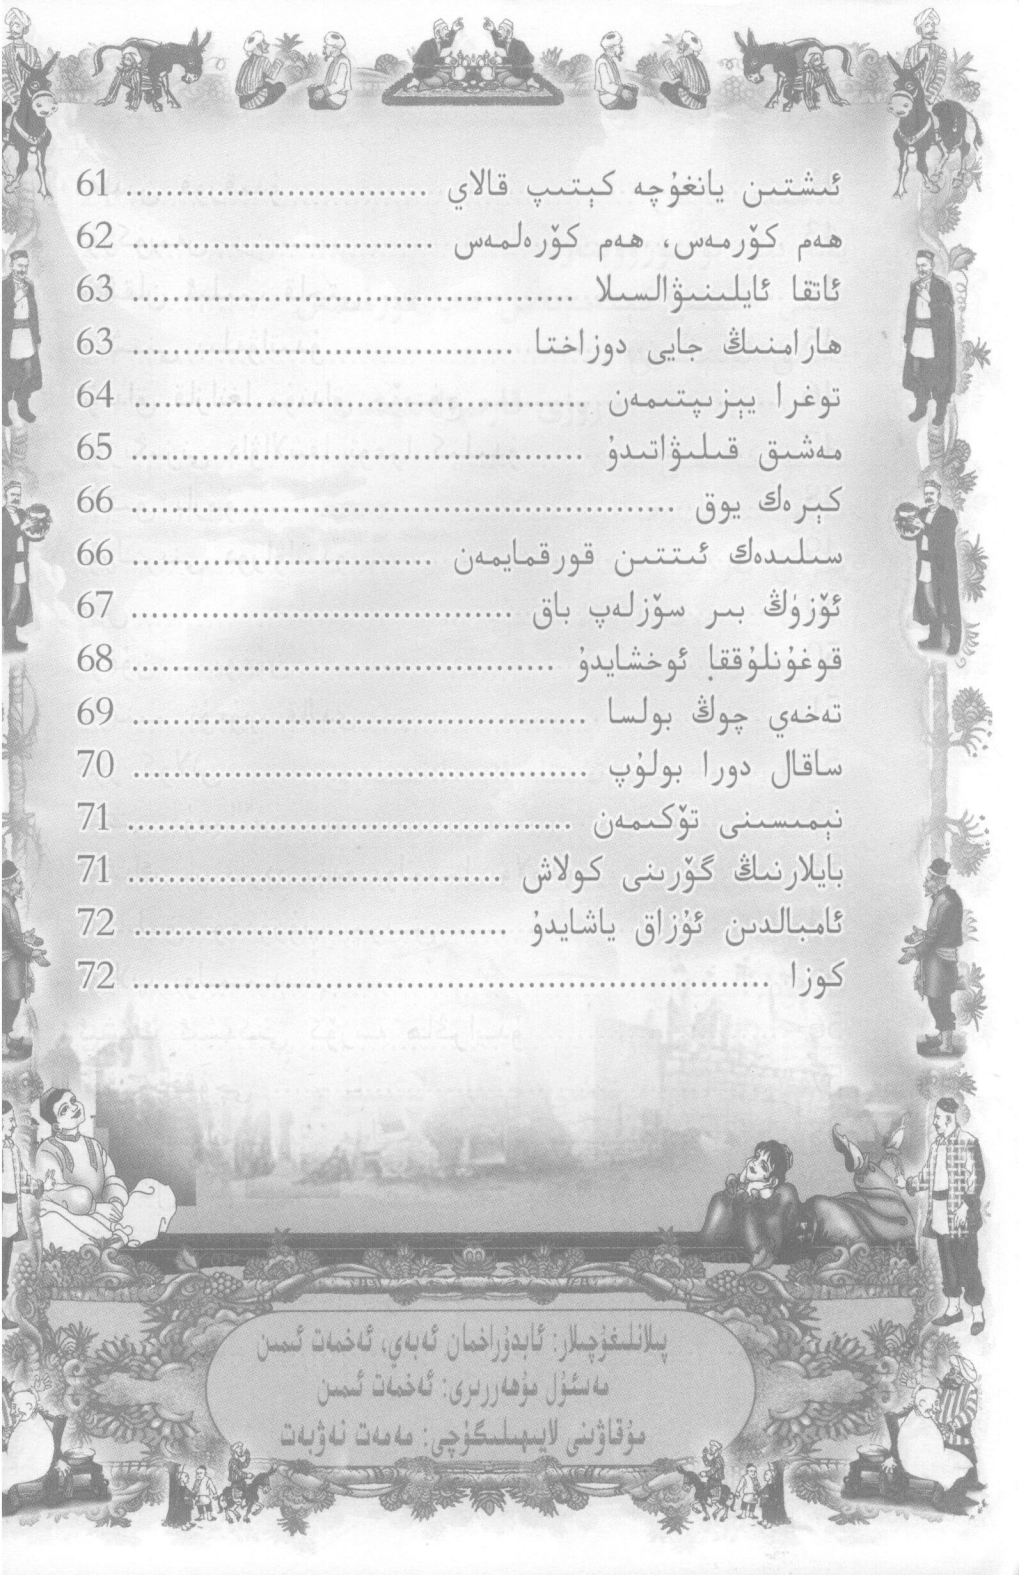 ئىشتىن يانغۇچە كېتىپ قالاي .............................. 61
ھەم كۆرمەس، ھەم كۆرەلمەس .............................. 62
ئاتقا ئايلىنىۋالسىلا ............................................ 63
ھارامنىڭ جايى دوزاختا ...................................... 63
توغرا يېزىپتىمەن ............................................. 64
مەشىق قىلىۋاتىدۇ ............................................. 65
كېرەك يوق ...................................................... 66
سىلىدەك ئىتتىن قورقمايمەن .............................. 66
ئۆزۈڭ بىر سۆزلەپ باق ...................................... 67
قوغۇنلۇققا ئوخشايدۇ .......................................... 68
تەخەي چوڭ بولسا ............................................. 69
ساقال دورا بولۇپ ............................................. 70
نېمىسىنى تۆكىمەن ............................................ 71
بايلارنىڭ گۆرىنى كولاش ..................................... 71
ئامبالدىن ئۇزاق ياشايدۇ ..................................... 72
كوزا ............................................................... 72
پىلانلىغۇچىلار: ئابدۇراخمان ئەبەي، ئەخمەت ئىمىن
مەسئۇل مۇھەررىرى: ئەخمەت ئىمىن
مۇقاۋىنى لايىھىلىگۈچى: مەمەت نەۋبەت